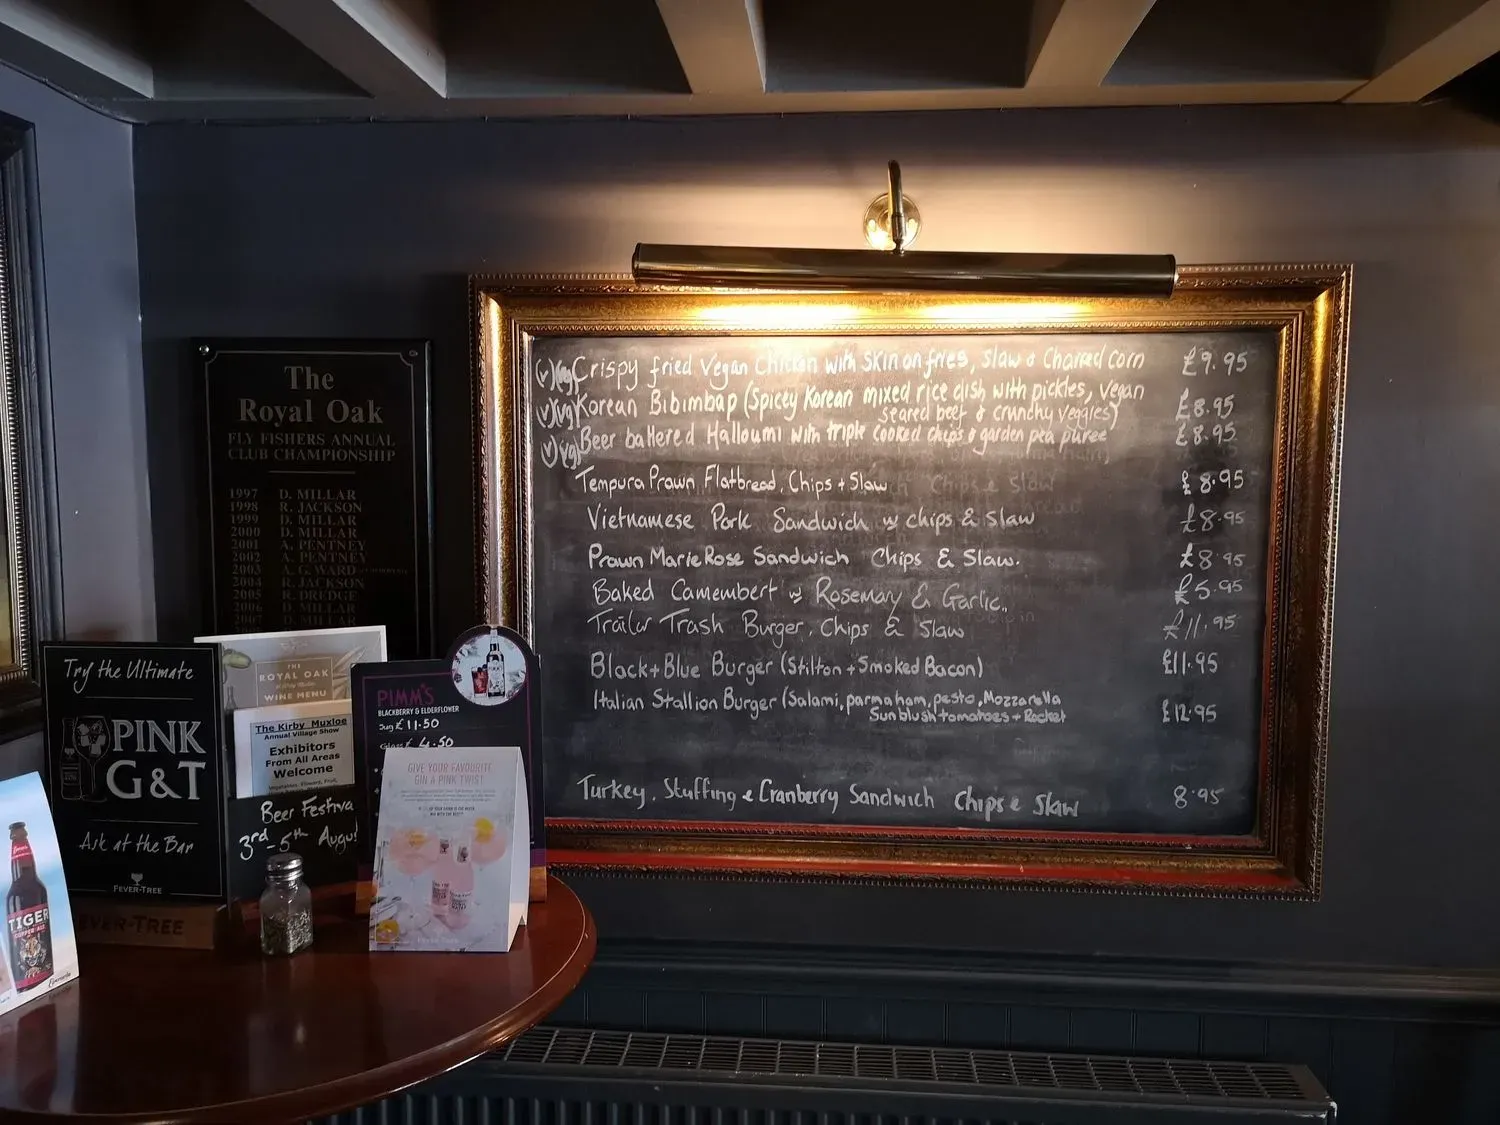 The
Royal Oak
FLY FISHERS ANNUAL
CLUB CHAMPIONSHIP
1997 D. MILLAR
1998 R. JACKSON
1999 D. MILLAR
2000 D. MILLAR
2001 A. PENTNEY
2002 A. PENTNEY
2003 A. G. WARD
2004 R. JACKSON
2005 R. DREDGE
2006 D. MILLAR
2007
(v)(vg) Crispy fried Vegan Chicken with skin on fries, slaw & Charred corn £9.95
(v)(vg) Korean Bibimbap (Spicey Korean mixed rice dish with pickles, vegan £8.95
seared beef & crunchy veggies)
(v)(vg) Beer battered Halloumi with triple cooked chips & garden pea puree £8.95
Tempura Prawn Flatbread, Chips + Slaw £8.95
Vietnamese Pork Sandwich w chips & slaw £8.95
Prawn Marie Rose Sandwich Chips & Slaw. £8.95
Baked Camembert w Rosemary & Garlic. £5.95
Trailer Trash Burger, Chips & Slaw £11.95
Black + Blue Burger (Stilton + Smoked Bacon) £11.95
Italian Stallion Burger (Salami, parma ham, pesto, Mozzarella £12.95
Sunblush tomatoes + Rocket
Turkey, Stuffing & Cranberry Sandwich Chips & Slaw 8.95
Try the Ultimate
PINK
G&T
Ask at the Bar
FEVER-TREE
FEVER-TREE
THE
ROYAL OAK
WINE MENU
The Kirby Muxloe
Annual Village Show
Exhibitors
From All Areas
Welcome
Vegetables, Flowers, Fruit,
Beer Festiva
3rd - 5th Augus
PIMM'S
BLACKBERRY & ELDERFLOWER
Jug £ 11.50
Glass £ 4.50
GIVE YOUR FAVOURITE
GIN A PINK TWIST
FEVER-TREE
TIGER
COPPER ALE